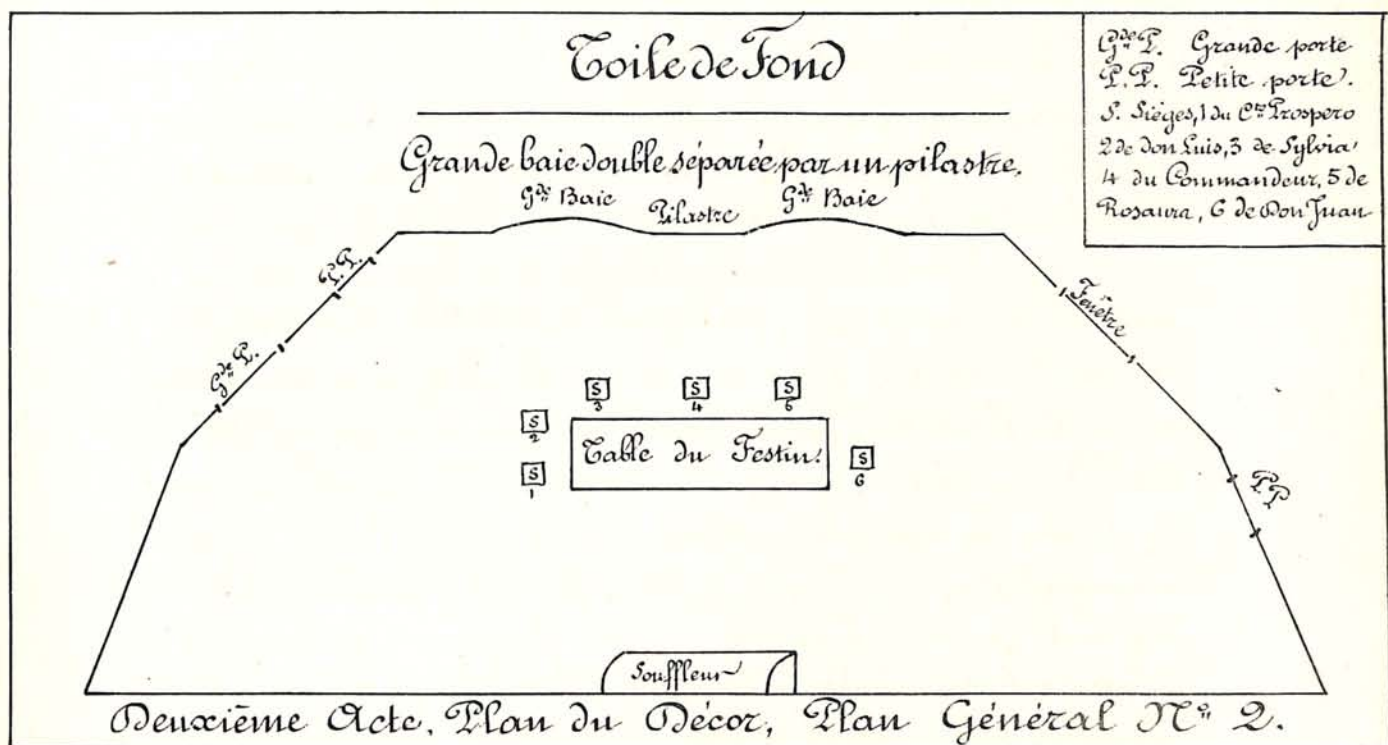 Toile de Fond
Gde P. Grande porte
P.P. Petite porte.
S. Sièges, 1 du Cte Prospero
2 de don Luis, 3 de Sylvia
4 du Commandeur, 5 de
Rosaura, 6 de Don Juan
Grande baie double séparée par un pilastre.
Gde Baie
Pilastre
Gde Baie
P.P.
Gde P.
Fenêtre
P.P
S
3
S
4
S
5
S
2
S
1
Table du Festin.
S
6
Souffleur
Deuxième Acte. Plan du Décor, Plan Général No 2.